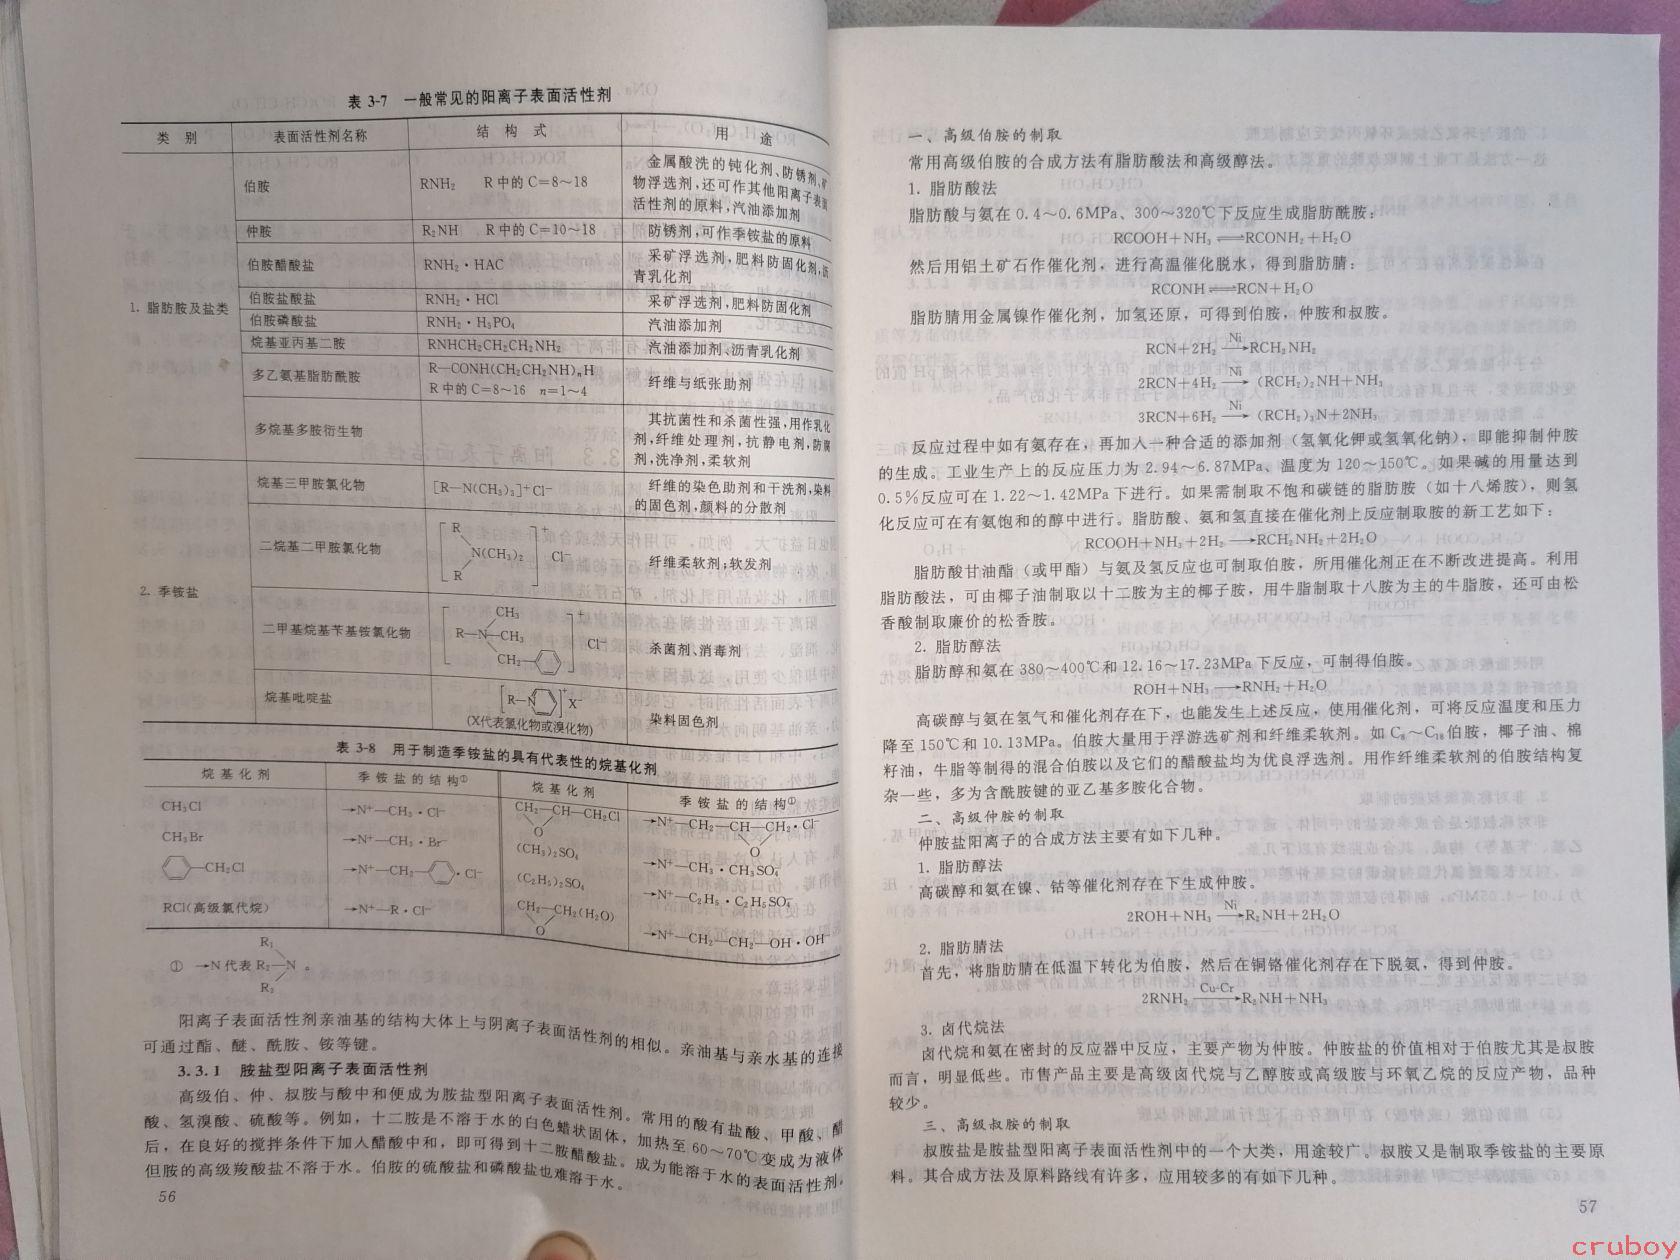 表 3-7 一般常见的阳离子表面活性剂
类 别 表面活性剂名称 结 构 式 用 途
1. 脂肪胺及盐类
伯胺 RNH₂ R 中的 C=8～18 金属酸洗的钝化剂、防锈剂,矿
物浮选剂,还可作其他阳离子表面
活性剂的原料,汽油添加剂
仲胺 R₂NH R 中的 C=10～18 防锈剂,可作季铵盐的原料
伯胺醋酸盐 RNH₂・HAC 采矿浮选剂,肥料防固化剂,沥
青乳化剂
伯胺盐酸盐 RNH₂・HCl 采矿浮选剂,肥料防固化剂
伯胺磷酸盐 RNH₂・H₃PO₄ 汽油添加剂
烷基亚丙基二胺 RNHCH₂CH₂CH₂NH₂ 汽油添加剂、沥青乳化剂
多乙氨基脂肪酰胺 R—CONH(CH₂CH₂NH)ₙH 纤维与纸张助剂
R 中的 C=8～16 n=1～4
多烷基多胺衍生物 其抗菌性和杀菌性强,用作乳化
剂,纤维处理剂,抗静电剂,防腐
剂,洗净剂,柔软剂
2. 季铵盐
烷基三甲胺氯化物 [R—N(CH₃)₃]⁺Cl⁻ 纤维的染色助剂和干洗剂,染料
的固色剂,颜料的分散剂
二烷基二甲胺氯化物 R R N(CH₃)₂ + Cl⁻ 纤维柔软剂;软发剂
二甲基烷基苄基铵氯化物 CH₃ R—N—CH₃ CH₂— + Cl⁻ 杀菌剂、消毒剂
烷基吡啶盐 [R—N]⁺X⁻ 染料固色剂
(X代表氯化物或溴化物)
表 3-8 用于制造季铵盐的具有代表性的烷基化剂
烷 基 化 剂 季 铵 盐 的 结 构① 烷 基 化 剂 季 铵 盐 的 结 构①
CH₃Cl →N⁺—CH₃・Cl⁻ CH₂—CH—CH₂Cl O →N⁺—CH₂—CH—CH₂・Cl⁻ O
CH₃Br →N⁺—CH₃・Br⁻ (CH₃)₂SO₄ →N⁺—CH₃・CH₃SO₄⁻
—CH₂Cl →N⁺—CH₂—・Cl⁻ (C₂H₅)₂SO₄ →N⁺—C₂H₅・C₂H₅SO₄⁻
RCl(高级氯代烷) →N⁺—R・Cl⁻ CH₂—CH₂(H₂O) O →N⁺—CH₂—CH₂—OH・OH⁻
R₁
① →N 代表 R₂—N 。
R₃
阳离子表面活性剂亲油基的结构大体上与阴离子表面活性剂的相似。亲油基与亲水基的连接
可通过酯、醚、酰胺、铵等键。
3.3.1 胺盐型阳离子表面活性剂
高级伯、仲、叔胺与酸中和便成为胺盐型阳离子表面活性剂。常用的酸有盐酸、甲酸、醋
酸、氢溴酸、硫酸等。例如，十二胺是不溶于水的白色蜡状固体，加热至 60～70℃变成为液体
后，在良好的搅拌条件下加入醋酸中和，即可得到十二胺醋酸盐。成为能溶于水的表面活性剂。
但胺的高级羧酸盐不溶于水。伯胺的硫酸盐和磷酸盐也难溶于水。
56
一、高级伯胺的制取
常用高级伯胺的合成方法有脂肪酸法和高级醇法。
1. 脂肪酸法
脂肪酸与氨在 0.4～0.6MPa、300～320℃下反应生成脂肪酰胺：
RCOOH+NH₃⇌RCONH₂+H₂O
然后用铝土矿石作催化剂，进行高温催化脱水，得到脂肪腈：
RCONH⇌RCN+H₂O
脂肪腈用金属镍作催化剂，加氢还原，可得到伯胺，仲胺和叔胺。
RCN+2H₂ —Ni→ RCH₂NH₂
2RCN+4H₂ —Ni→ (RCH₂)₂NH+NH₃
3RCN+6H₂ —Ni→ (RCH₂)₃N+2NH₃
反应过程中如有氨存在，再加入一种合适的添加剂（氢氧化钾或氢氧化钠），即能抑制仲胺
的生成。工业生产上的反应压力为 2.94～6.87MPa、温度为 120～150℃。如果碱的用量达到
0.5%反应可在 1.22～1.42MPa 下进行。如果需制取不饱和碳链的脂肪胺（如十八烯胺），则氢
化反应可在有氨饱和的醇中进行。脂肪酸、氨和氢直接在催化剂上反应制取胺的新工艺如下：
RCOOH+NH₃+2H₂ ⟶RCH₂NH₂+2H₂O
脂肪酸甘油酯（或甲酯）与氨及氢反应也可制取伯胺，所用催化剂正在不断改进提高。利用
脂肪酸法，可由椰子油制取以十二胺为主的椰子胺，用牛脂制取十八胺为主的牛脂胺，还可由松
香酸制取廉价的松香胺。
2. 脂肪醇法
脂肪醇和氨在 380～400℃和 12.16～17.23MPa 下反应，可制得伯胺。
ROH+NH₃ ⟶RNH₂+H₂O
高碳醇与氨在氢气和催化剂存在下，也能发生上述反应，使用催化剂，可将反应温度和压力
降至 150℃和 10.13MPa。伯胺大量用于浮游选矿剂和纤维柔软剂。如 C₈～C₁₈伯胺，椰子油、棉
籽油，牛脂等制得的混合伯胺以及它们的醋酸盐均为优良浮选剂。用作纤维柔软剂的伯胺结构复
杂一些，多为含酰胺键的亚乙基多胺化合物。
二、高级仲胺的制取
仲胺盐阳离子的合成方法主要有如下几种。
1. 脂肪醇法
高碳醇和氨在镍、钴等催化剂存在下生成仲胺。
2ROH+NH₃ —Ni→R₂NH+2H₂O
2. 脂肪腈法
首先，将脂肪腈在低温下转化为伯胺，然后在铜铬催化剂存在下脱氨，得到仲胺。
2RNH₂ —Cu-Cr→R₂NH+NH₃
3. 卤代烷法
卤代烷和氨在密封的反应器中反应，主要产物为仲胺。仲胺盐的价值相对于伯胺尤其是叔胺
而言，明显低些。市售产品主要是高级卤代烷与乙醇胺或高级胺与环氧乙烷的反应产物，品种
较少。
三、高级叔胺的制取
叔胺盐是胺盐型阳离子表面活性剂中的一个大类，用途较广。叔胺又是制取季铵盐的主要原
料。其合成方法及原料路线有许多，应用较多的有如下几种。
57
cruboy